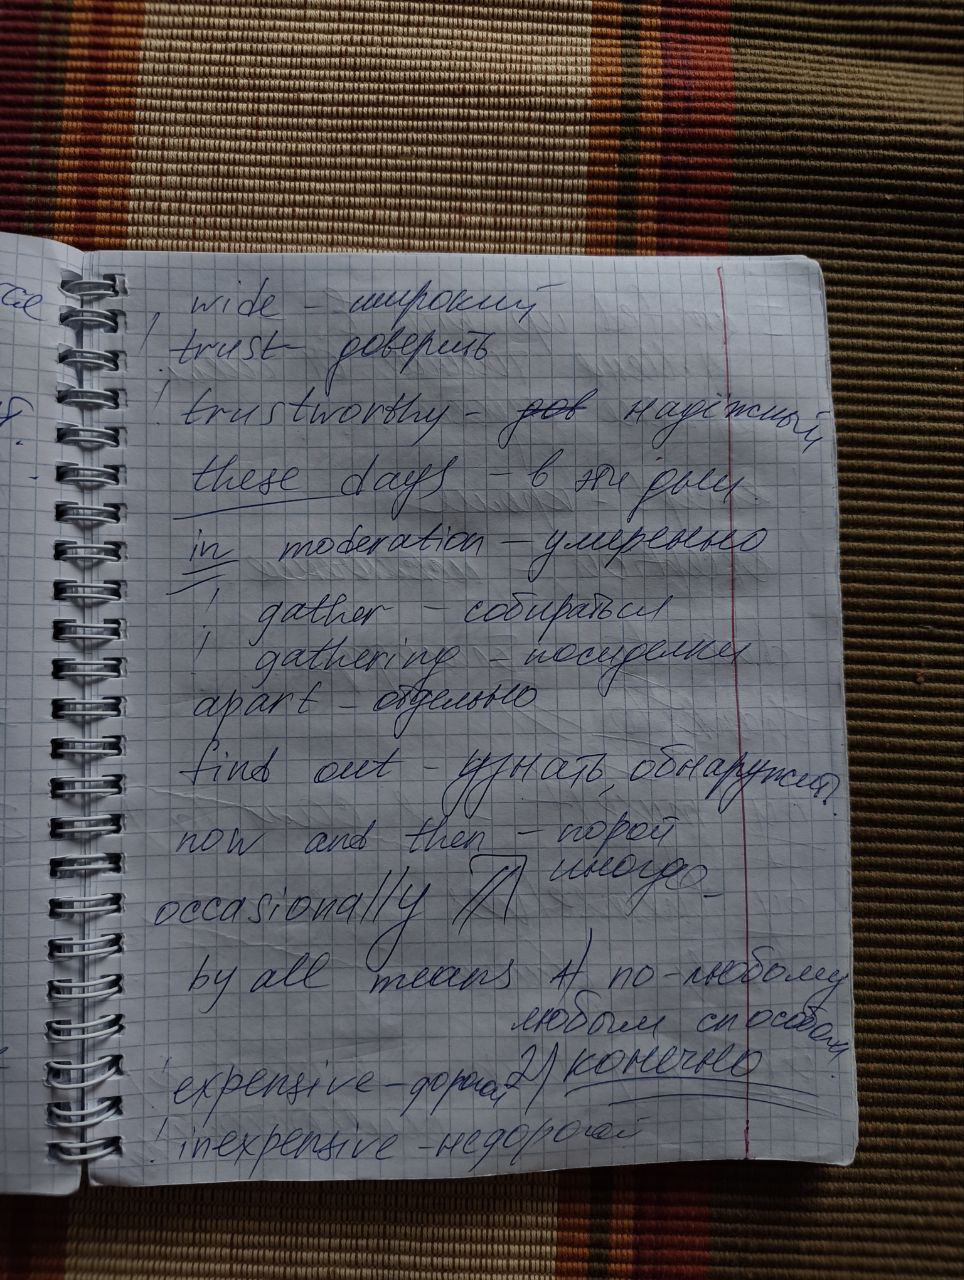 wide - широкий
! trust - доверить
! trustworthy - дов надёжный
these days - в эти дни
in moderation - умеренно
! gather - собираться
! gathering - посиделки
apart - отдельно
find out - узнать, обнаружить
now and then - порой
occasionally иногда
by all means 1) по-любому
любым способом
! expensive - дорогой 2) конечно
! inexpensive - недорогой